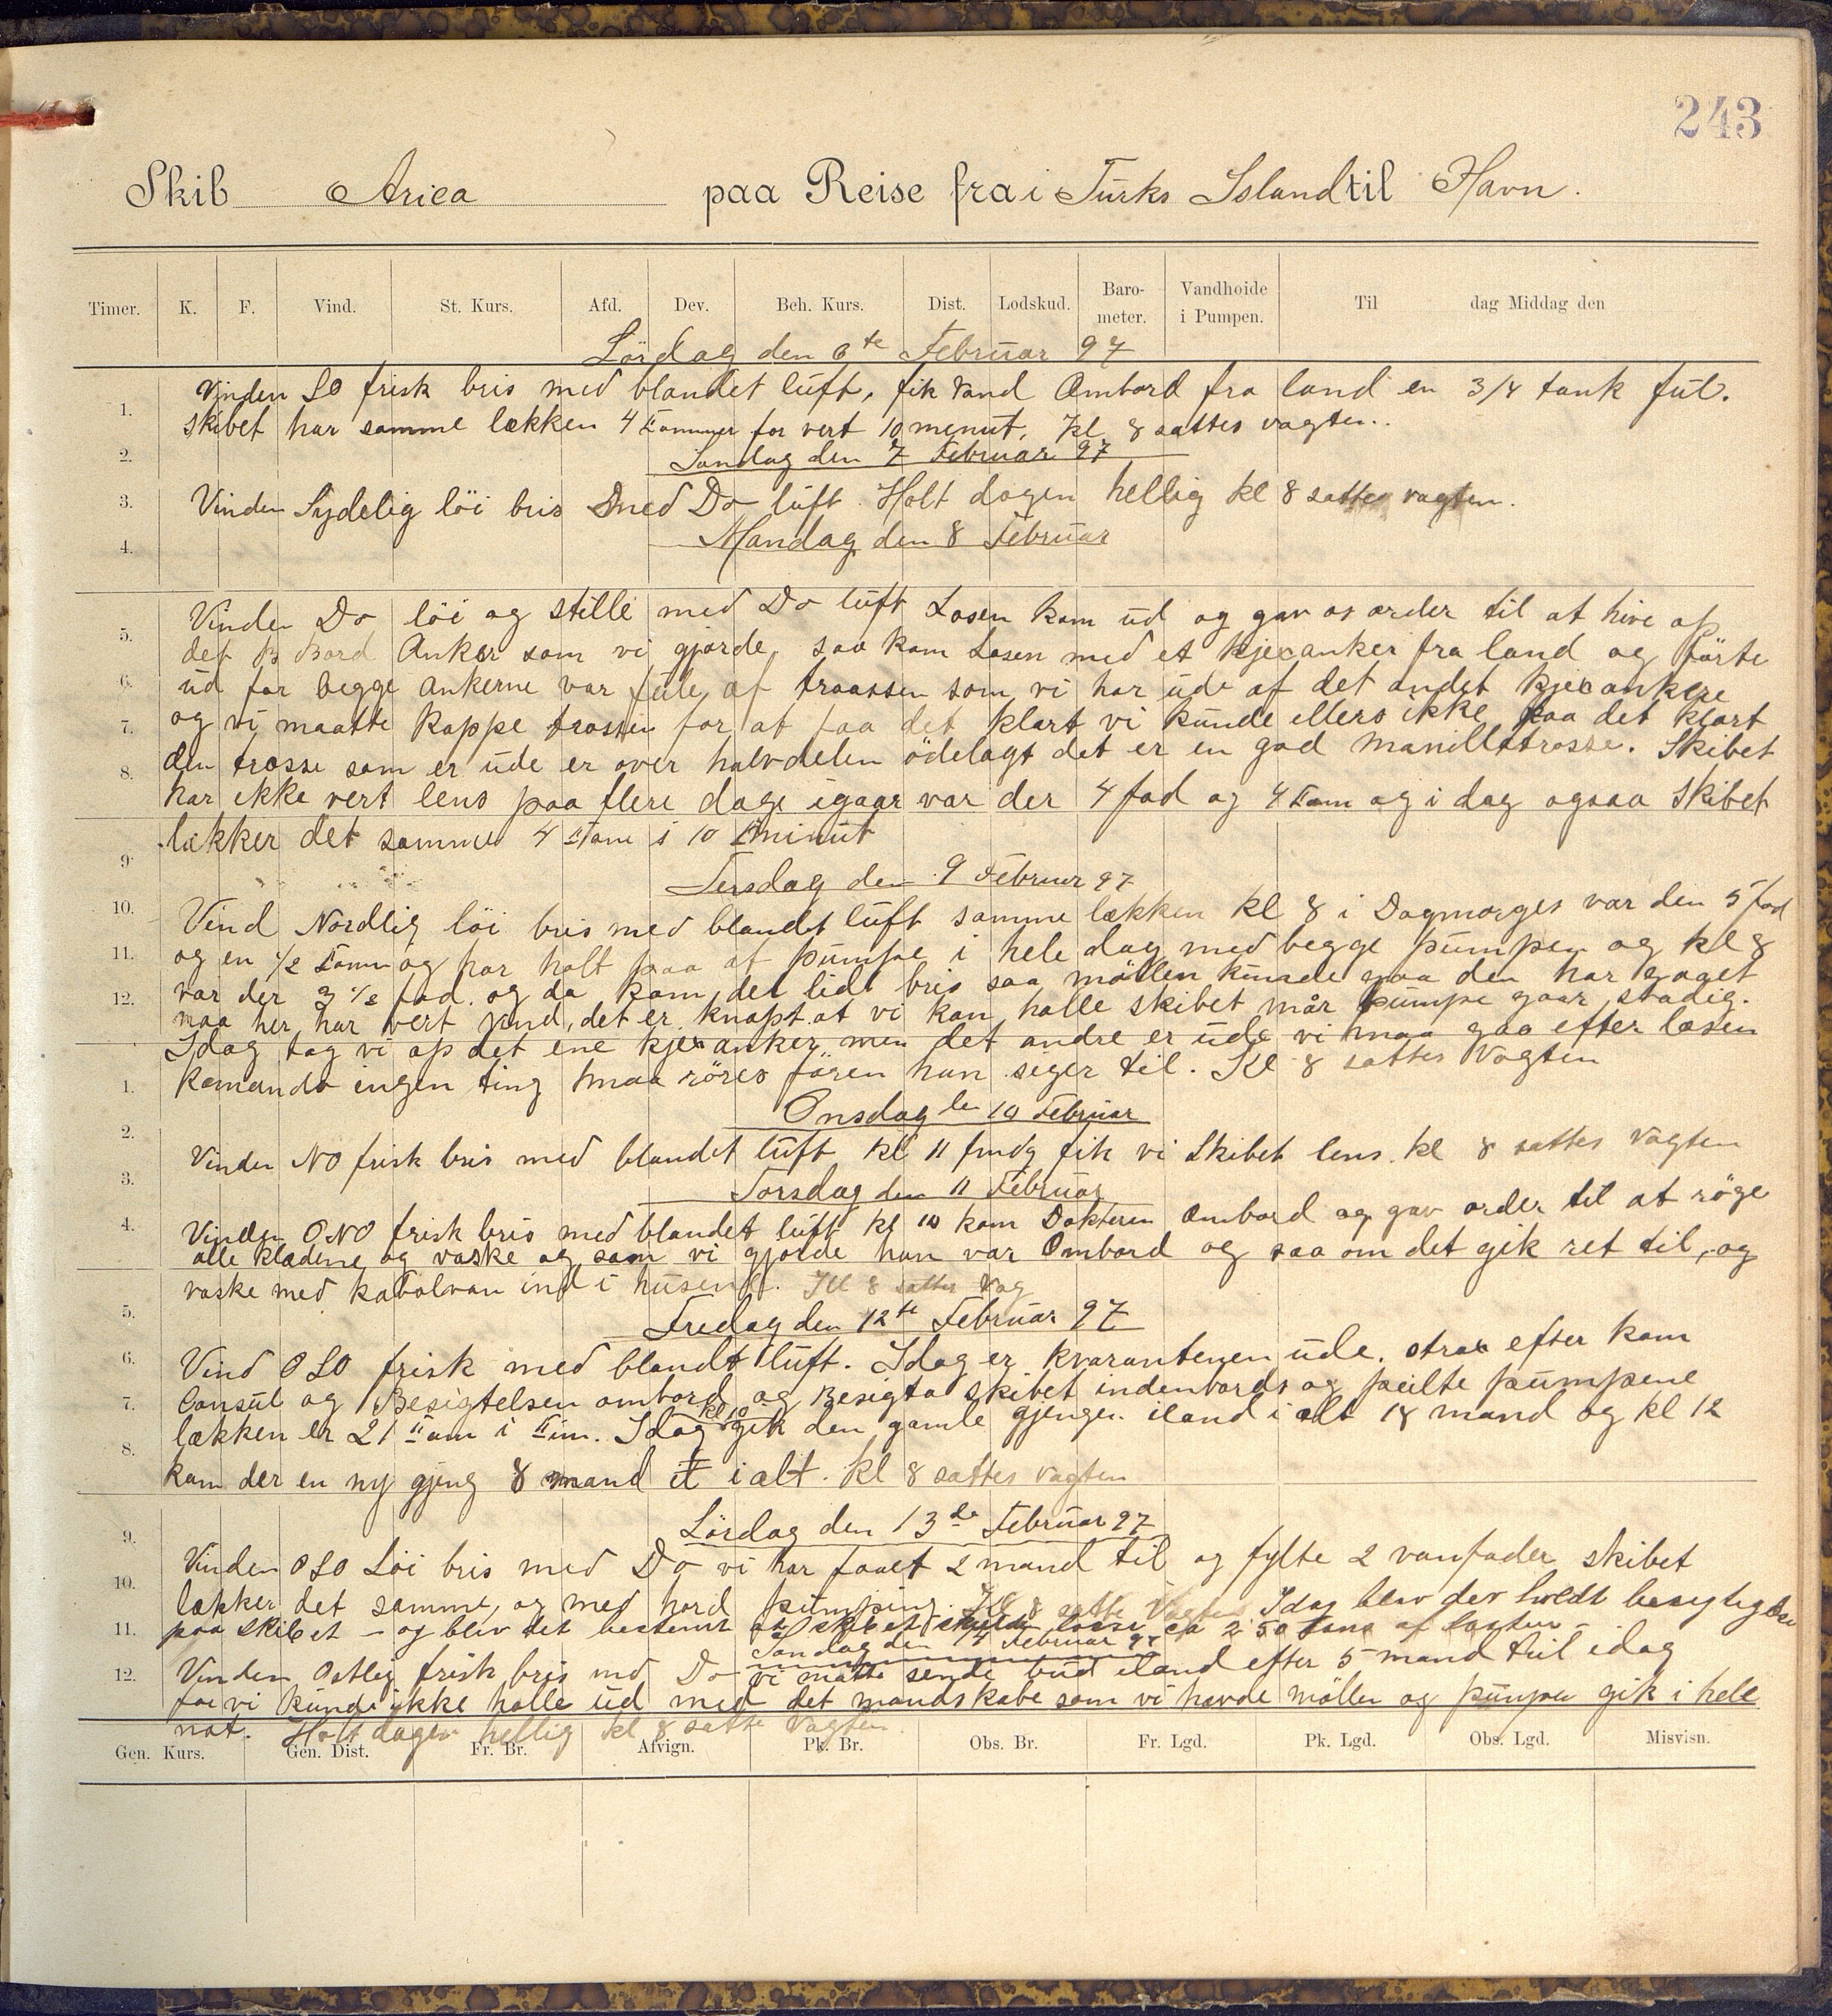 243
Skib Arica paa Reise fra i Turks Island til Havn.
Timer. K. F. Vind. St. Kurs. Afd. Dev. Beh. Kurs. Dist. Lodskud. Barometer. Vandhoide i Pumpen. Til dag Middag den
Lördag den 6te Februar 97
1. Vinden SO frisk bris med blandet luft, fik vand Ombord fra land en 3/4 tank ful.
skibet har samme lækken 4 Tommer for vert 10 menut. Kl 8 sattes vagten..
2. Søndag den 7 Februar 97
3. Vinden Sydelig löi bris med Do luft. Holt dagen hellig kl 8 sattes vagten.
4. Mandag den 8 Februar
5. Vinden Do löi og stille med Do luft Losen kom ud og gav os order til at hive op
det B Bord Anker som vi gjorde, saa kom Losen med et kjexanker fra land og förte
6. ud for begge ankerne var fule af traassen som vi har ude af det andet kjexankere
7. og vi maatte kappe trossen for at faa det klart vi kunde ellers ikke faa det klart
8. den trosse som er ude er over halvdelen ödelagt det er en god manillatrosse. Skibet
har ikke vert lens paa flere dage igaar var der 4 fod og 4 Tom og i dag ogsaa Skibet
lækker det samme 4 Tom i 10 minut
9. Tersdag den 9 Februar 97
10. Vind Nordlig löi bris med blandet luft samme lækken kl 8 i Dagmorges var den 5 fod
11. og en 1/2 Tomm og har holt paa at pumpe i hele dag med begge pumpen og kl 8
12. var der 3 1/2 fod. og da kom det lidt bris saa möllen kunde gaa den har gaaet
naa her har vert vind, det er knapt at vi kan halle skibet når pumpe gaar stadig.
Idag tog vi op det ene kjexanker men det andre er ude vi maa gaa efter losen
1. komando ingen ting maa röres fören han siger til. Kl 8 sattes Vagten
2. Onsdag de 10 Februar
Vinden NO frisk bris med blandet luft kl 11 fmdg fik vi Skibet lens. kl 8 sattes Vagten
3. Torsdag den 11 Februar
4. Vinden ONO frisk bris med blandet luft kl 10 kom Dokteren ombord og gav order til at röge
alle klædene og vaske og som vi gjorde han var Ombord og saa om det gik ret til, og
vaske med kabolvan ind i husene. Kl 8 sattes Vag
5. Fredag den 12te Februar 97
6. Vind OSO frisk med blandt luft. Idag er kvarantenen ude. strax efter kom
7. Consul og Besigtelsen ombord og Besigta skibet indenbords og peilte pumpene
lækken er 21 Tom i Tim. Idag kl 10 gik den gamle gjengen iland i alt 18 mand og kl 12
8. kom der en ny gjeng 8 mand i alt. kl 8 sattes vagten
9. Lördag den 13de Februar 97
Vinden OSO Löi bris med Do vi har faaet 2 mand til og fylte 2 vanfader skibet
10. lækker det samme, og med hord pumping. Kl 8 satte Vagten Idag blev der holdt besigtigelse
11. paa skibet – og blev det bestemt at skibet skulde losse ca 250 Tons af lasten –
Søndag den 14 Februar 97
12. Vinden Ostlig frisk bris md Do vi måtte sende bud iland efter 5 mand til idag
for vi kunde ikke halle ud med det mandskabe som vi havde möller og pumpen gik i hele
nat. Holt dagen hellig kl 8 satte Vagten
Gen. Kurs. Gen. Dist. Fr. Br. Afvign. Pk. Br. Obs. Br. Fr. Lgd. Pk. Lgd. Obs. Lgd. Misvisn.